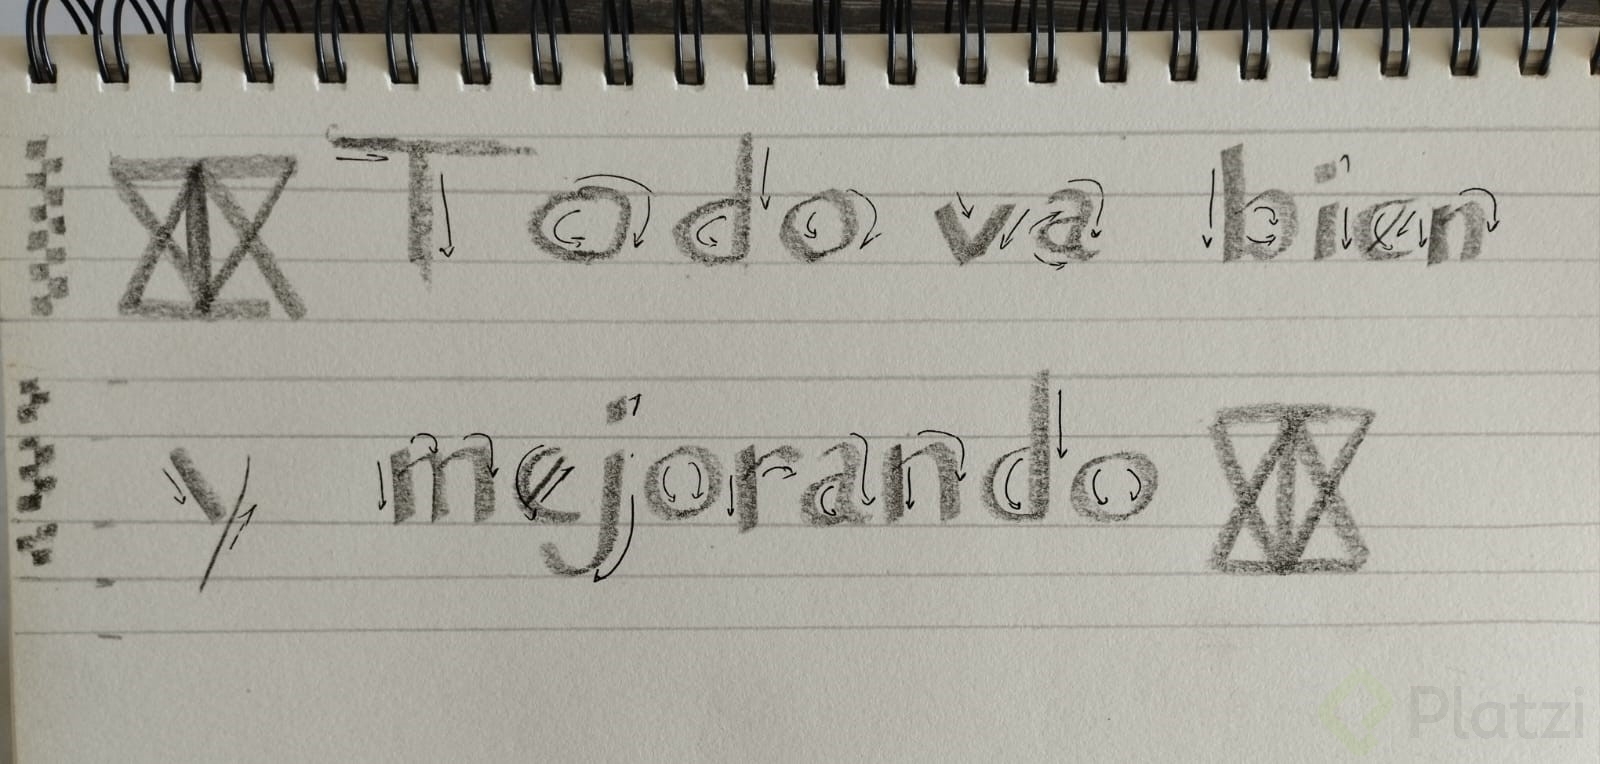 Todo va bien
y mejorando
Platzi